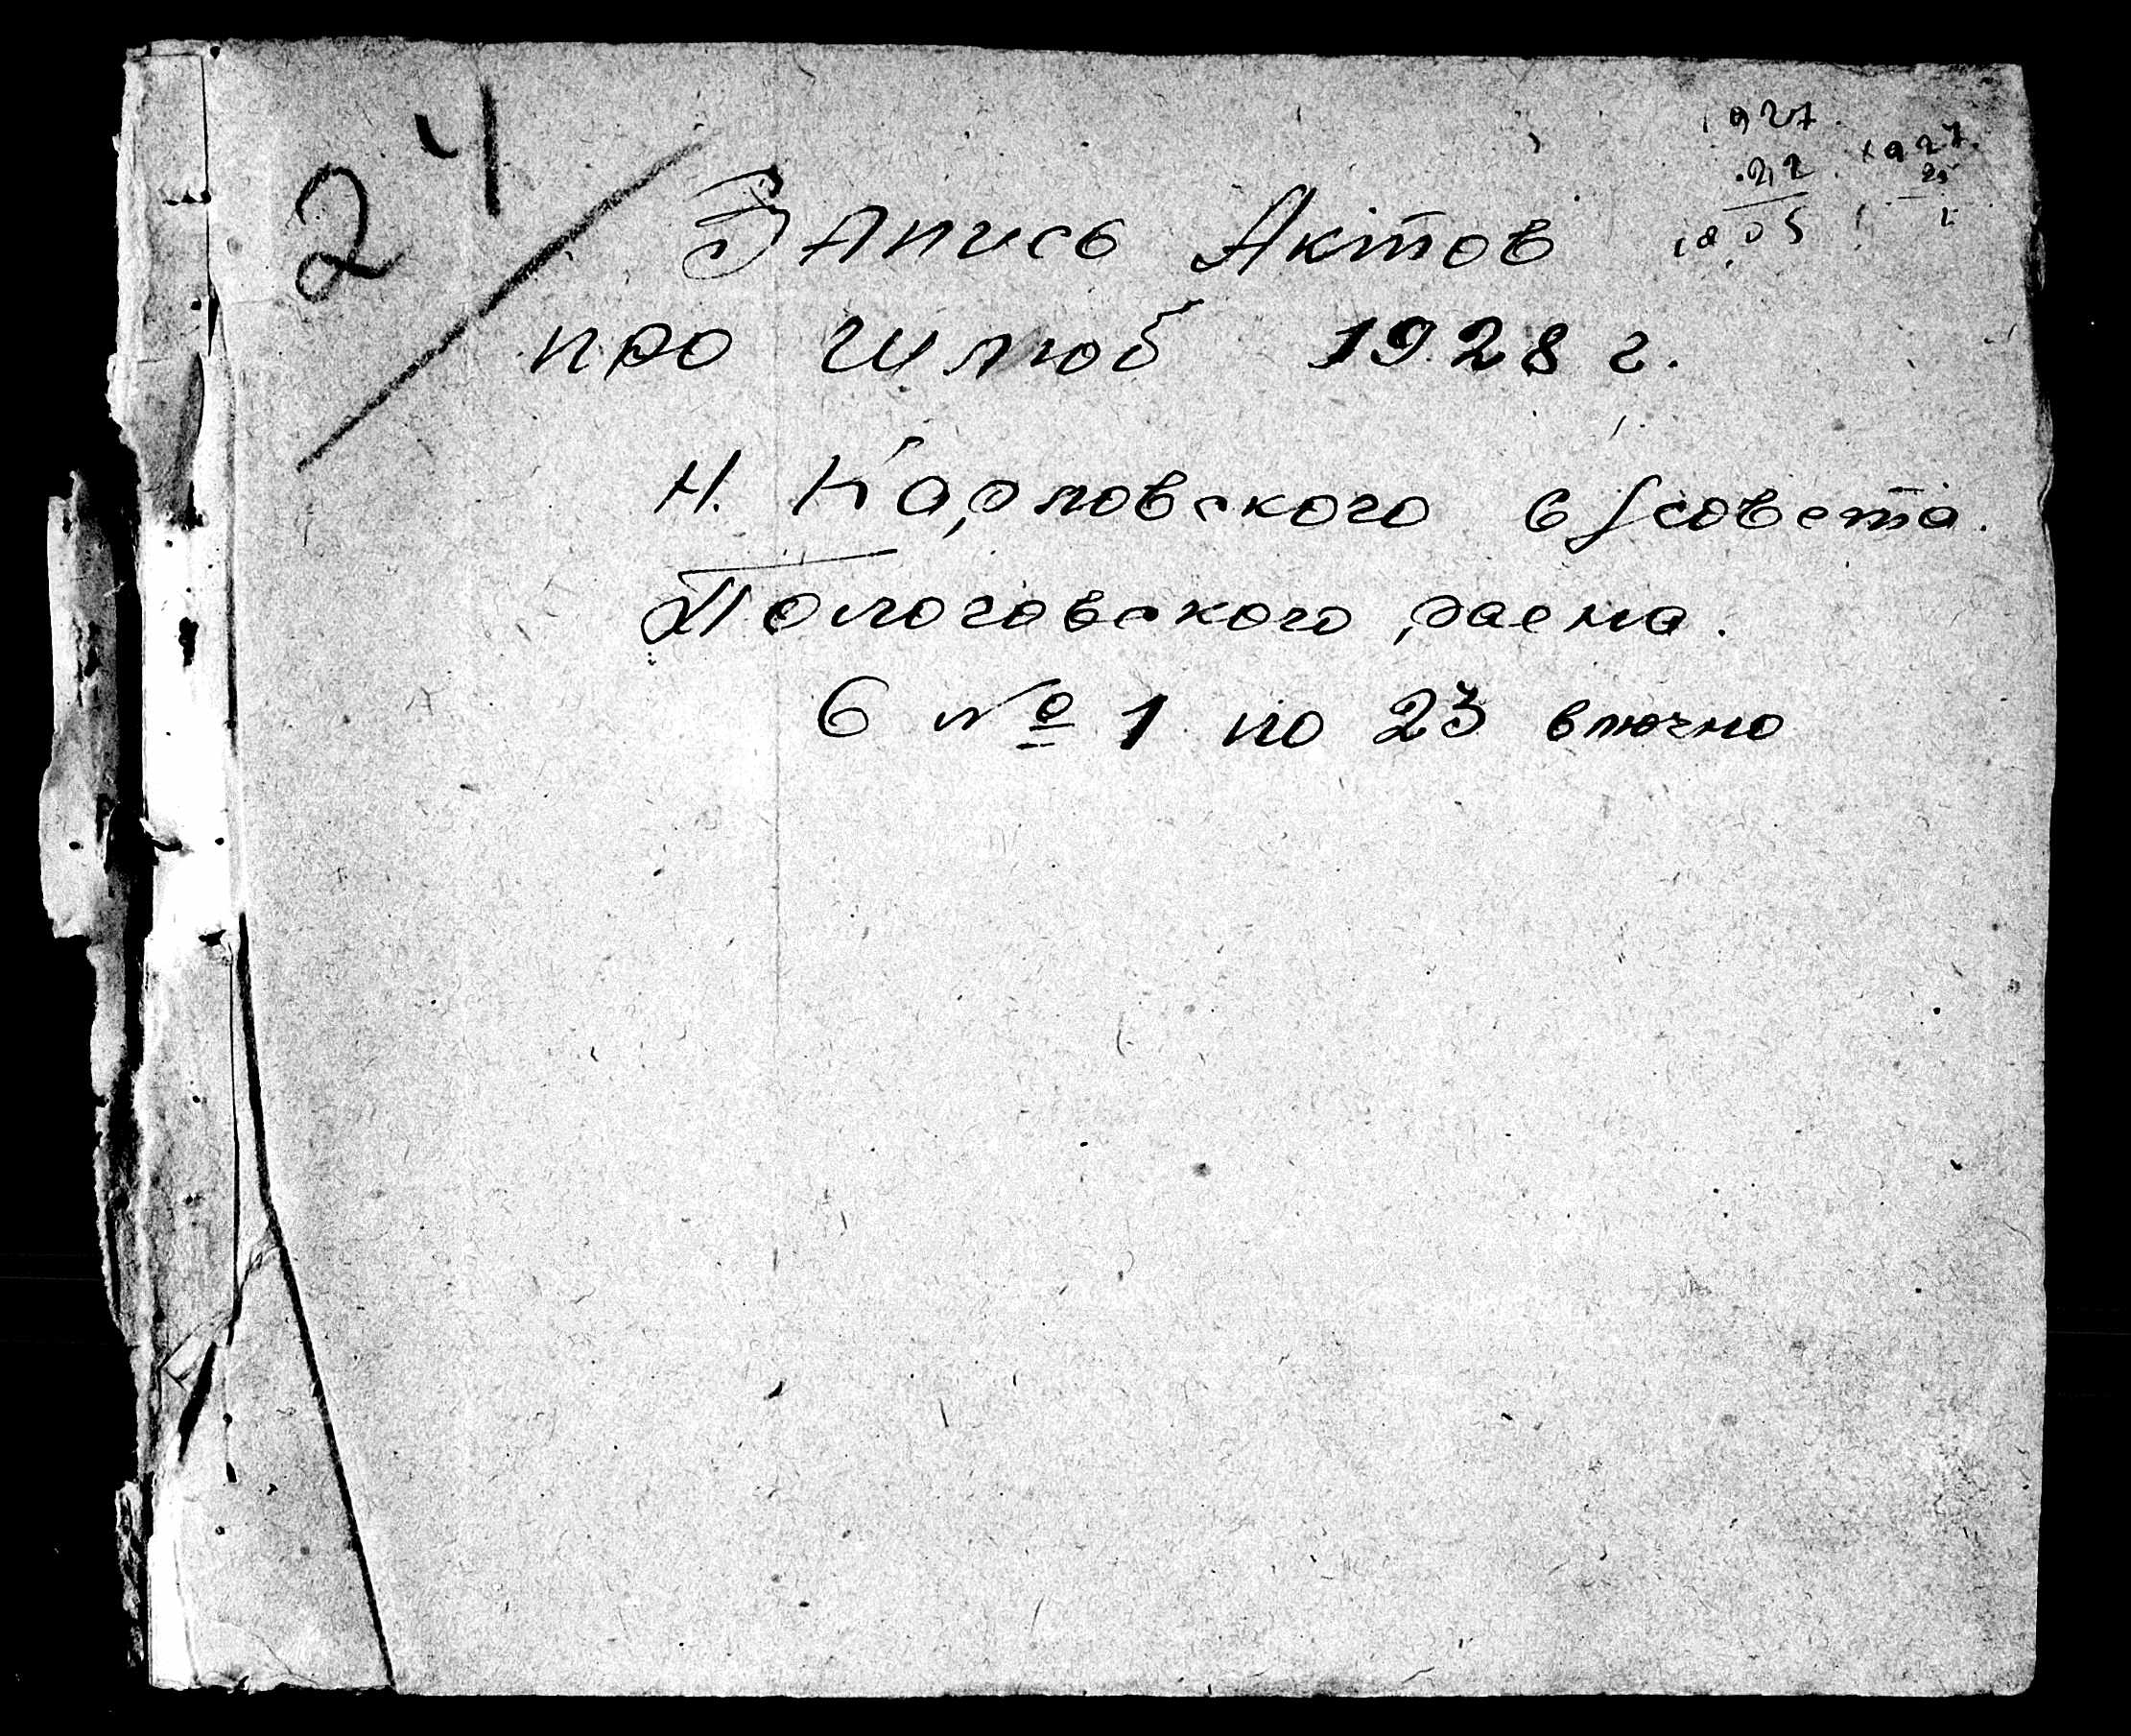 24
Запись Актов
про шлюб 1928 г.
Н. Карловского с/совета.
Пологовского раена.
С № 1 по 23 влючно
1927
22
1905
1927